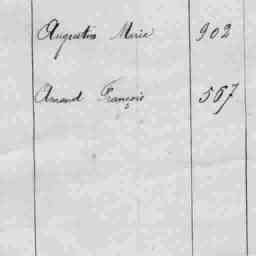 Augustin Marie 902
Amand François 567